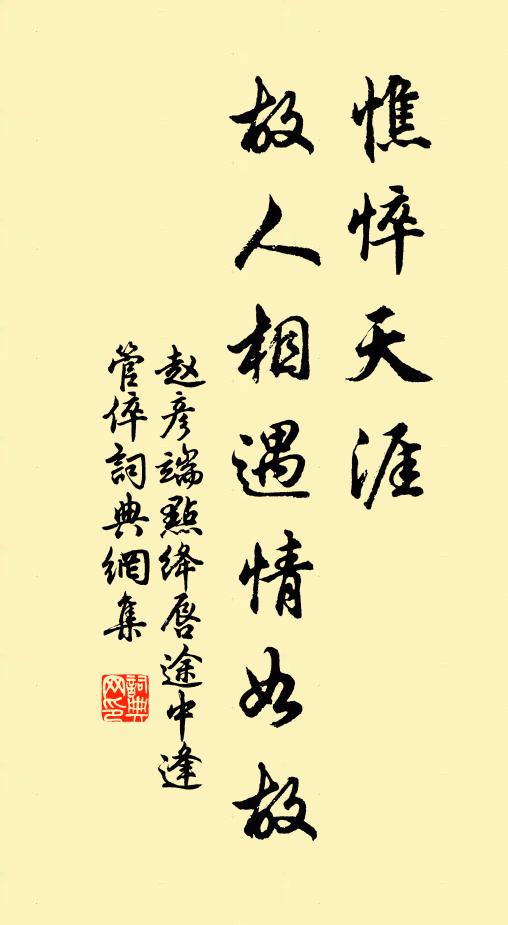 憔悴天涯
故人相遇情如故
赵彦端點絳唇途中逢
管倅詞典網集
詞典
网印